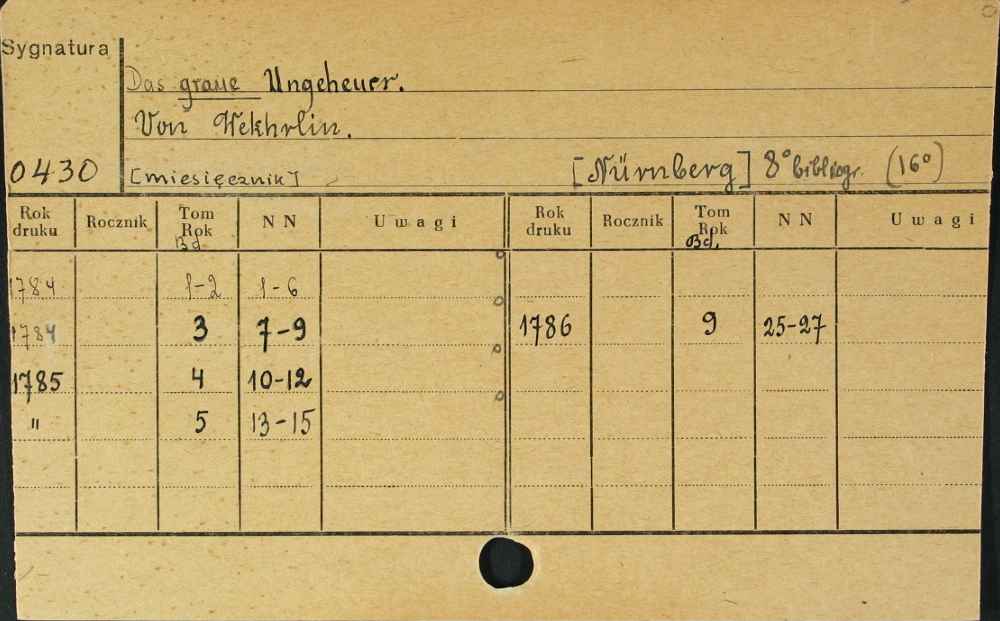 Sygnatura
Das graue Ungeheuer.
Von Wekhrlin.
0430
[miesięcznik] [Nürnberg] 8° bibliogr. (16°)
Rok druku Rocznik Tom Rok Bd. NN Uwagi Rok druku Rocznik Tom Rok Bd. NN Uwagi
1784 1-2 1-6
1784 3 7-9 1786 9 25-27
1785 4 10-12
" 5 13-15